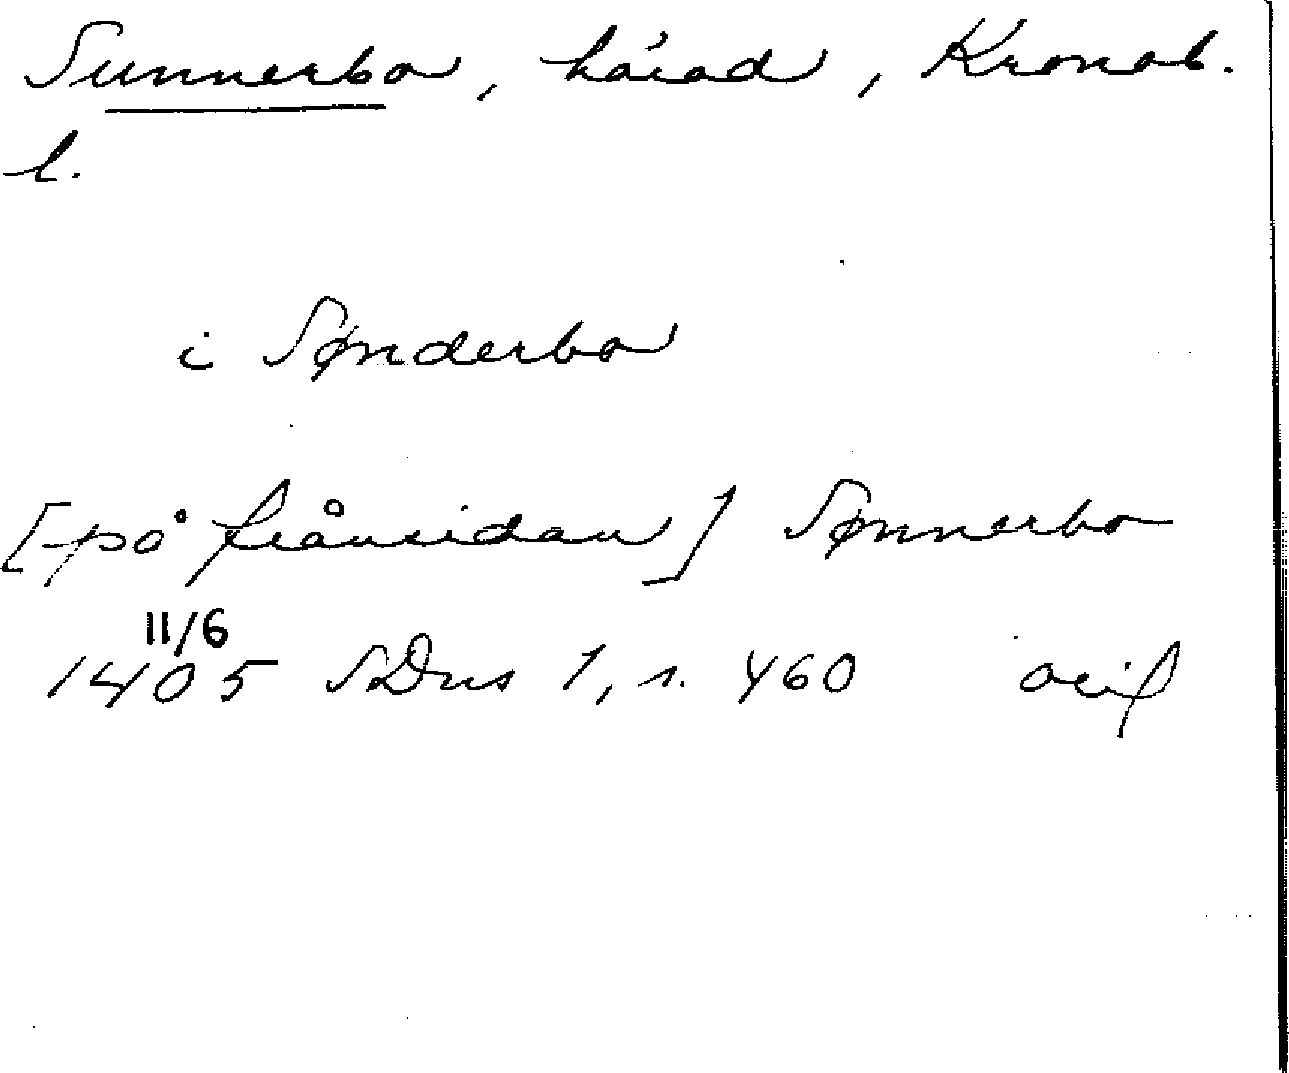 Sunnerbo, härad, Kronob.
l.
i Sønderbo
[på frånsidan] Sønnerbo
11/6
1405 SDns 1, s. 460 orig